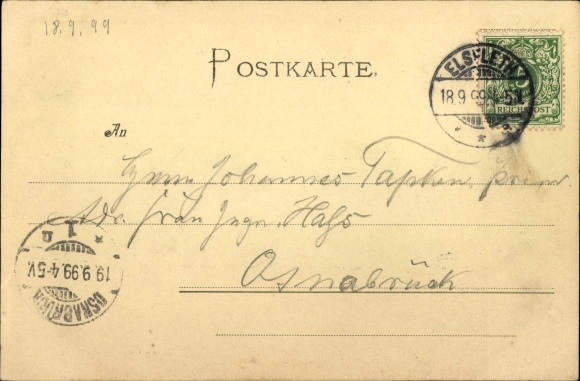 18.9.99
POSTKARTE.
ELSFLETH
18.9.99 5-
5
REICHSPOST
An
Herrn Johannes Tapken, prim.
Adr. Frau Hafs
Osnabrück
OSNABRÜCK
19.9.99.4-5V.
1